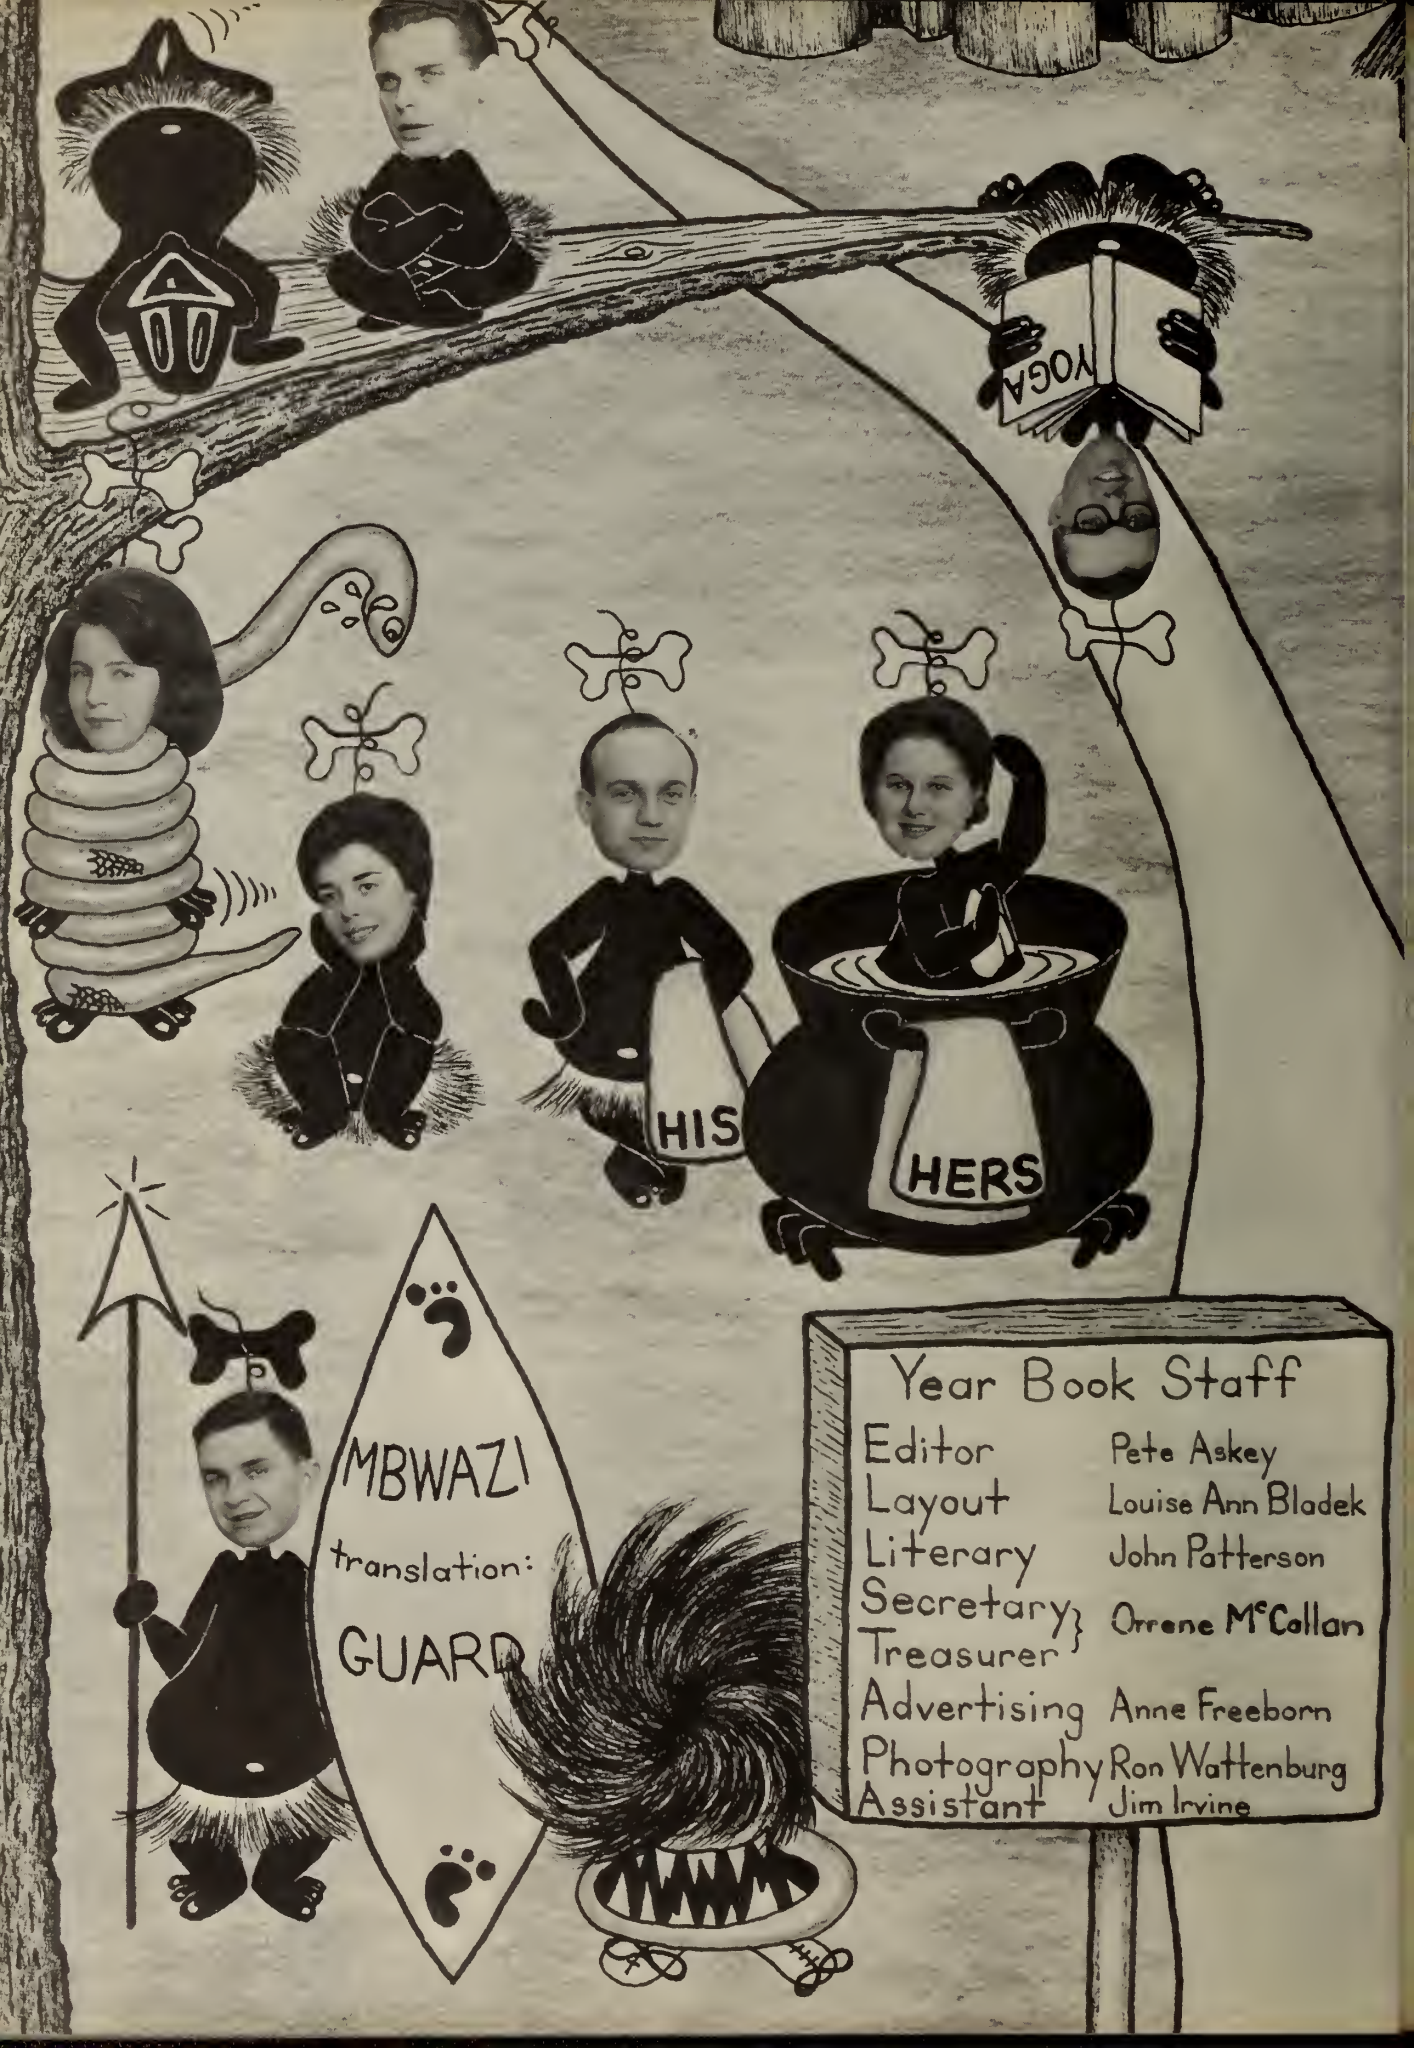 YOGA
HIS
HERS
MBWAZI
translation:
GUARD
Year Book Staff
Editor Pete Askey
Layout Louise Ann Bladek
Literary John Patterson
Secretary } Orrene McCallan
Treasurer
Advertising Anne Freeborn
Photography Ron Wattenburg
Assistant Jim Irvine